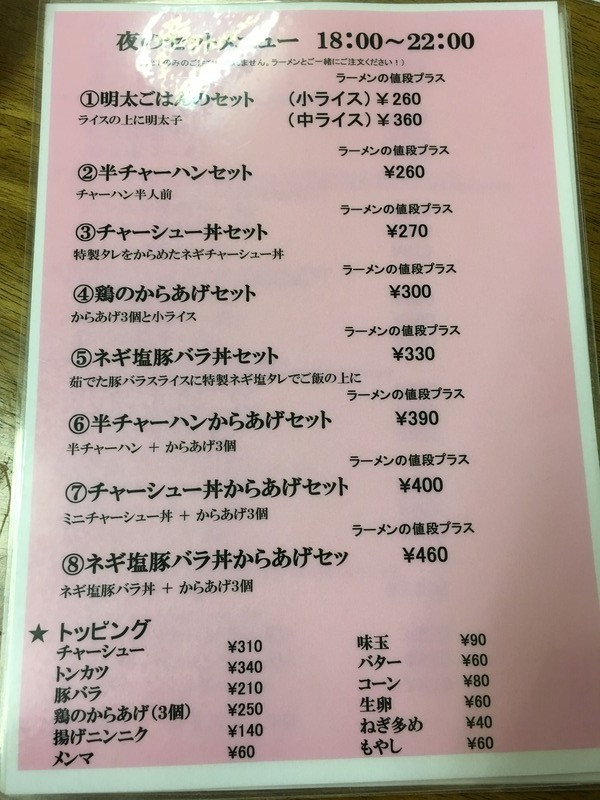 夜のセットメニュー 18:00～22:00
ません。ラーメンとご一緒にご注文ください！）
ラーメンの値段プラス
①明太ごはんのセット （小ライス）¥260
ライスの上に明太子 （中ライス）¥360
ラーメンの値段プラス
②半チャーハンセット ¥260
チャーハン半人前
ラーメンの値段プラス
③チャーシュー丼セット ¥270
特製タレをからめたネギチャーシュー丼
ラーメンの値段プラス
④鶏のからあげセット ¥300
からあげ3個と小ライス
ラーメンの値段プラス
⑤ネギ塩豚バラ丼セット ¥330
茹でた豚バラスライスに特製ネギ塩タレでご飯の上に
ラーメンの値段プラス
⑥半チャーハンからあげセット ¥390
半チャーハン ＋ からあげ3個
ラーメンの値段プラス
⑦チャーシュー丼からあげセット ¥400
ミニチャーシュー丼 ＋ からあげ3個
ラーメンの値段プラス
⑧ネギ塩豚バラ丼からあげセッ ¥460
ネギ塩豚バラ丼 ＋ からあげ3個
★ トッピング
チャーシュー ¥310
トンカツ ¥340
豚バラ ¥210
鶏のからあげ（3個） ¥250
揚げニンニク ¥140
メンマ ¥60
味玉 ¥90
バター ¥60
コーン ¥80
生卵 ¥60
ねぎ多め ¥40
もやし ¥60